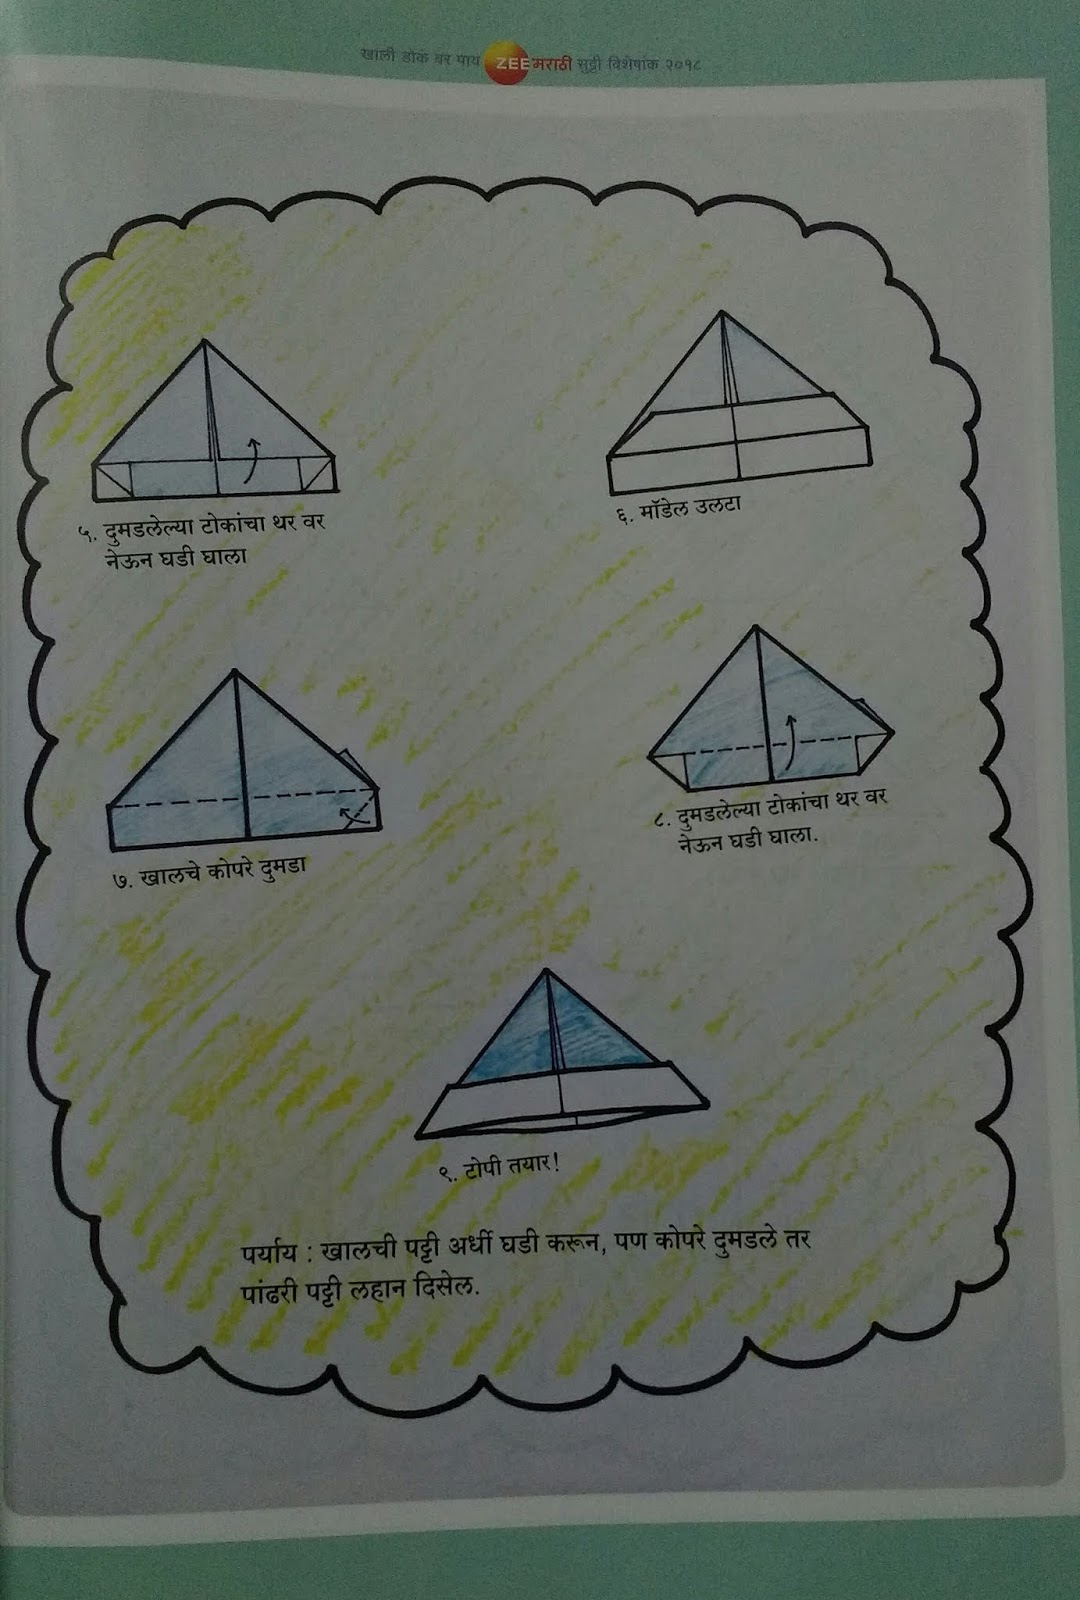 खाली डोकं वर पाय ZEE मराठी सुट्टी विशेषांक २०१८
५. दुमडलेल्या टोकांचा थर वर
नेऊन घडी घाला
६. मॉडेल उलटा
७. खालचे कोपरे दुमडा
८. दुमडलेल्या टोकांचा थर वर
नेऊन घडी घाला.
९. टोपी तयार!
पर्याय : खालची पट्टी अर्धी घडी करून, पण कोपरे दुमडले तर
पांढरी पट्टी लहान दिसेल.